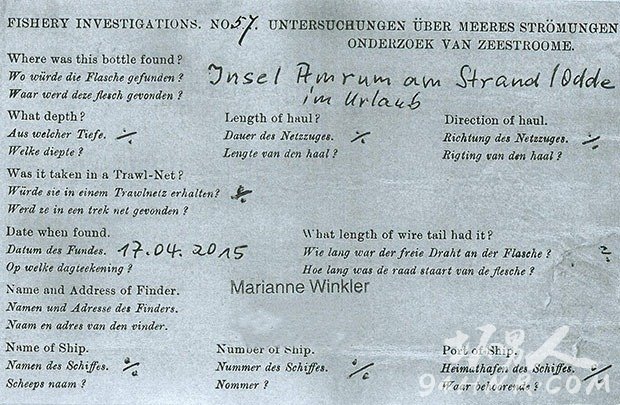 FISHERY INVESTIGATIONS. NO. 57. UNTERSUCHUNGEN ÜBER MEERES STRÖMUNGEN
ONDERZOEK VAN ZEESTROOME.
Where was this bottle found?
Wo würde die Flasche gefunden?
Waar werd deze flesch gevonden?
Insel Amrum am Strand/Odde
im Urlaub
What depth?
Aus welcher Tiefe.
Welke diepte?
Length of haul?
Dauer des Netzzuges.
Lengte van den haal?
Direction of haul.
Richtung des Netzzuges.
Rigting van den haal?
Was it taken in a Trawl-Net?
Würde sie in einem Trawlnetz erhalten?
Werd ze in een trek net gevonden?
Date when found.
Datum des Fundes. 17.04.2015
Op welke dagteekening?
What length of wire tail had it?
Wie lang war der freie Draht an der Flasche? ?
Hoe lang was de raad staart van de flesche?
Name and Address of Finder.
Namen und Adresse des Finders.
Naam en adres van den vinder.
Marianne Winkler
Name of Ship.
Namen des Schiffes.
Scheeps naam?
Number of Ship.
Nummer des Schiffes.
Nommer?
Port of Ship.
Heimathafen des Schiffes.
Waar behoorende?